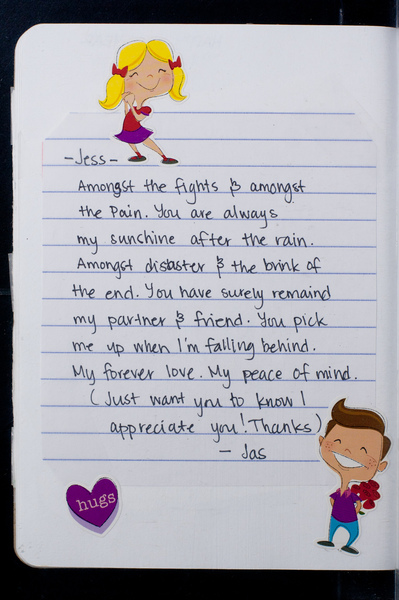 -Jess-
Amongst the fights & amongst
the Pain. You are always
my sunshine after the rain.
Amongst disaster & the brink of
the end. You have surely remaind
my partner & friend. You pick
me up when I'm falling behind.
My forever love. My peace of mind.
(Just want you to know I
appreciate you! Thanks)
- Jas
hugs